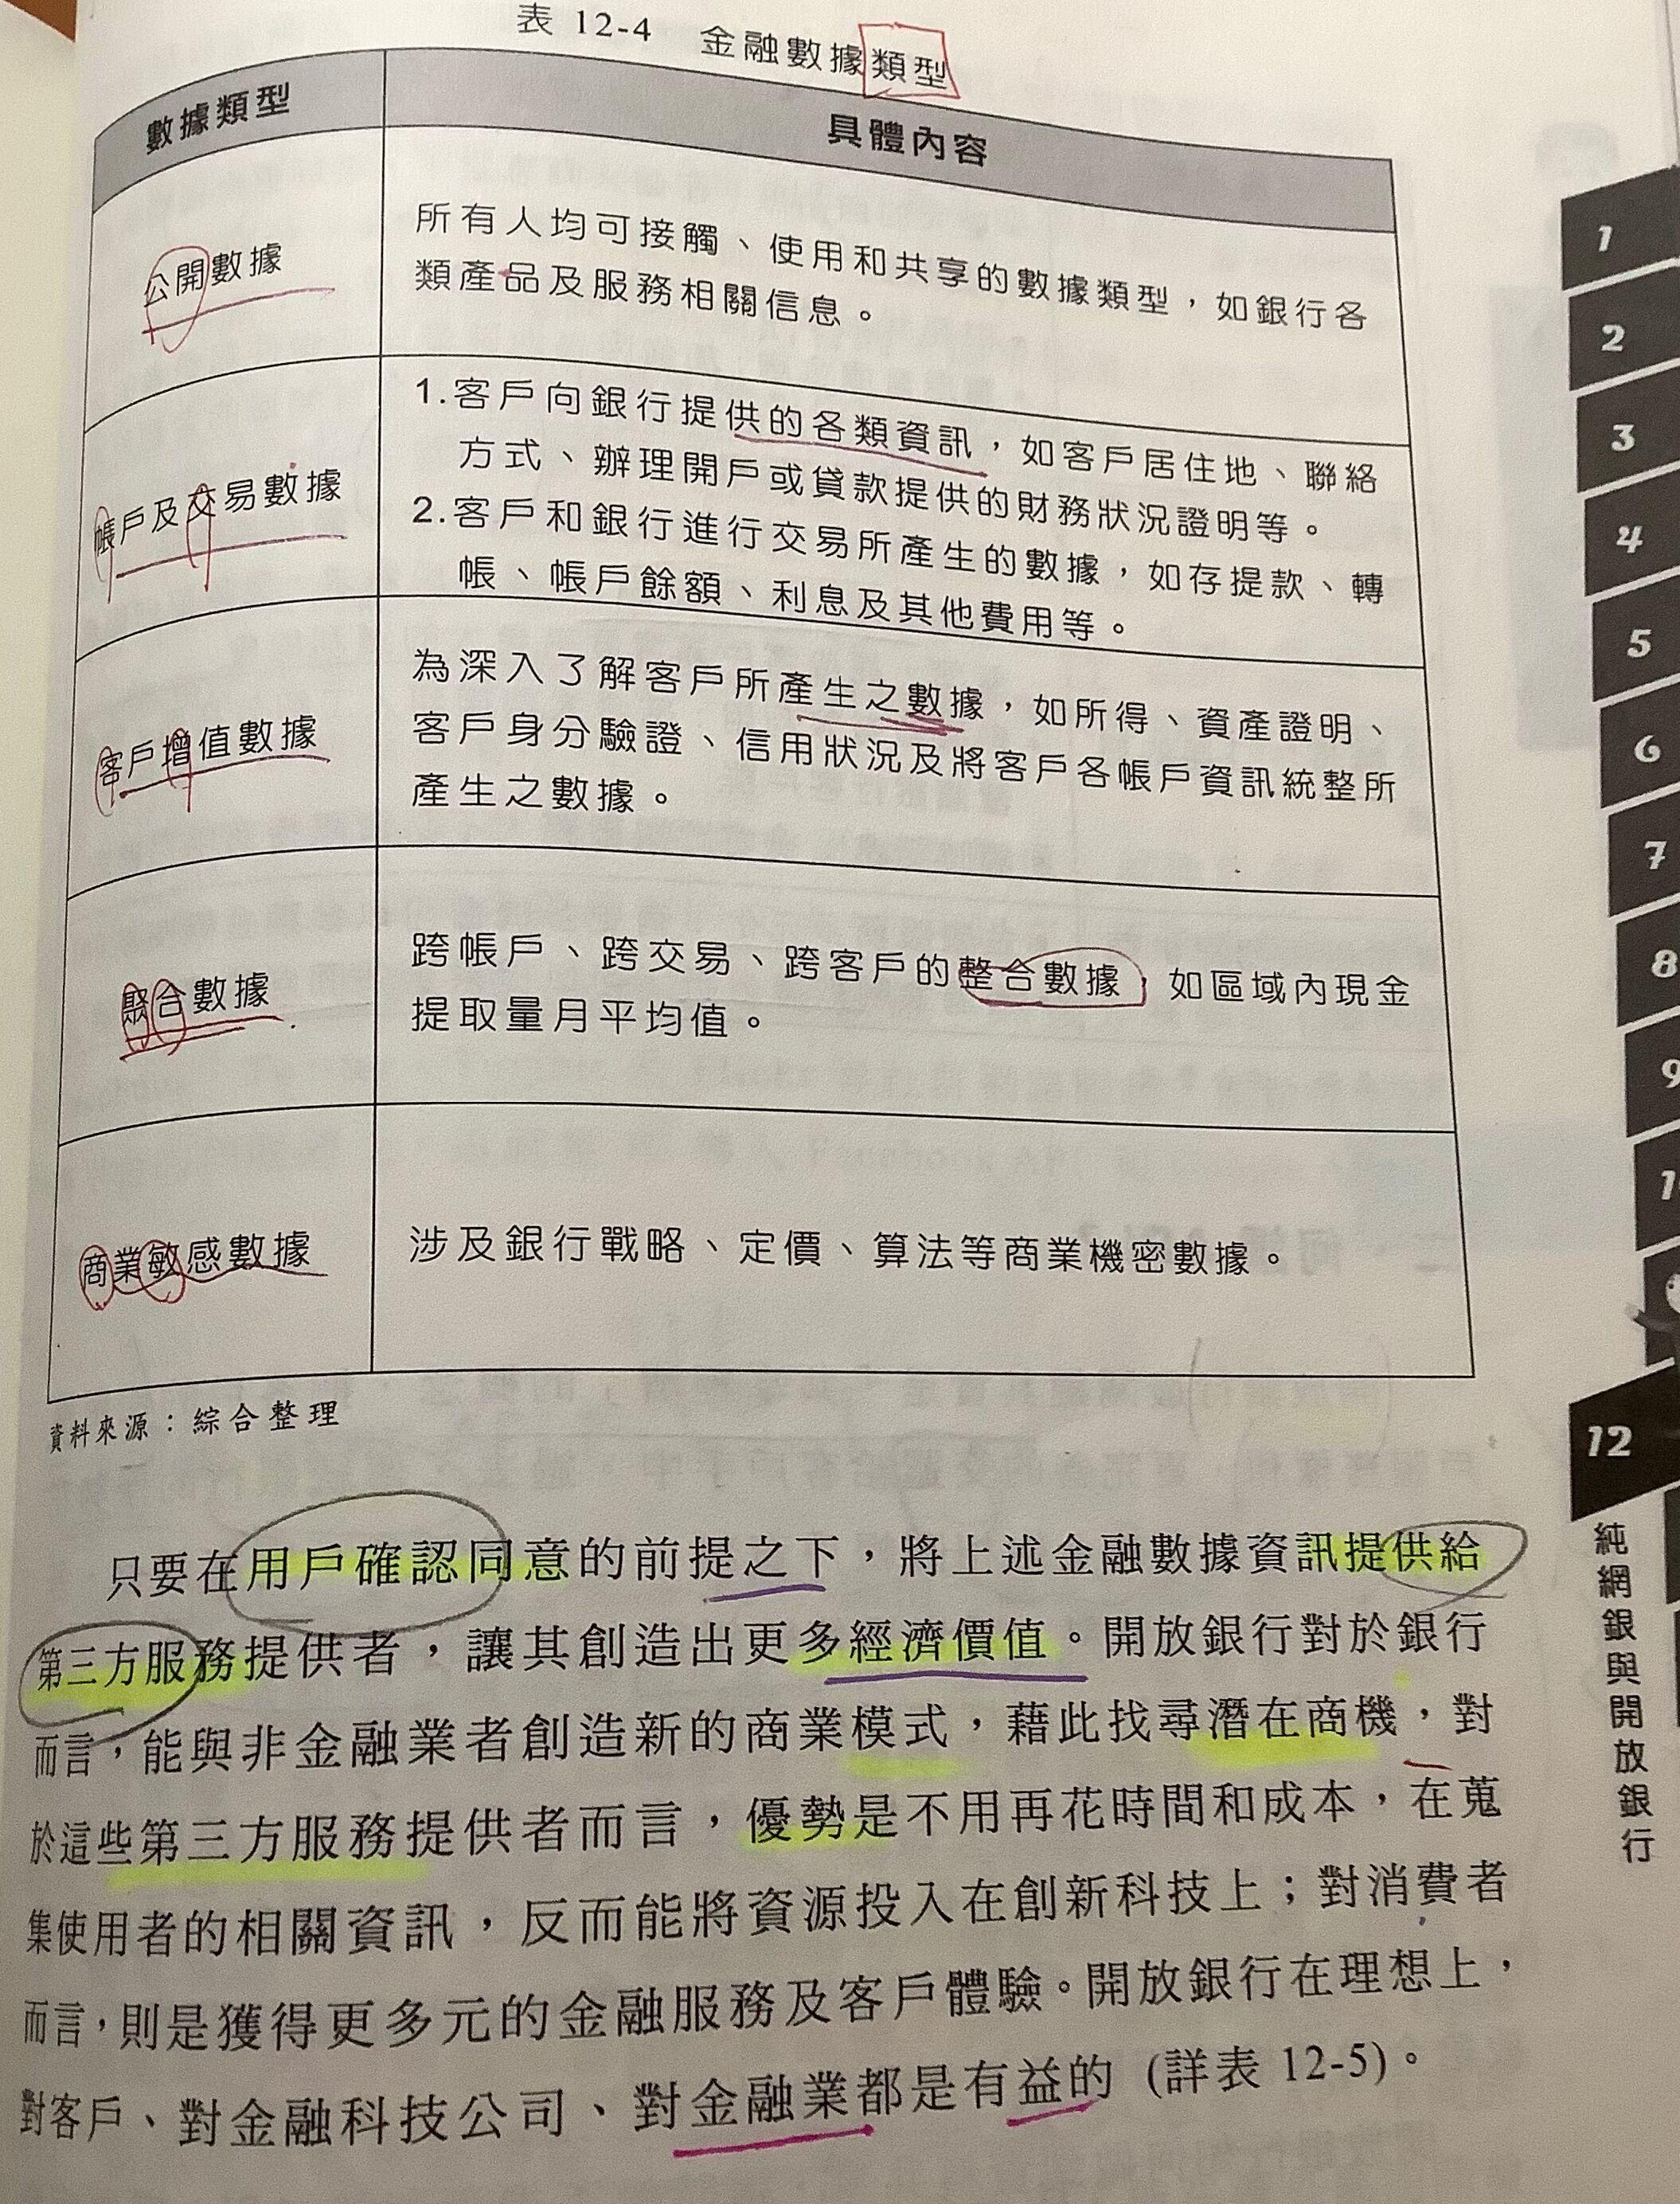 表 12-4 金融數據類型
數據類型
具體內容
公開數據
所有人均可接觸、使用和共享的數據類型，如銀行各
類產品及服務相關信息。
帳戶及交易數據
1.客戶向銀行提供的各類資訊，如客戶居住地、聯絡
方式、辦理開戶或貸款提供的財務狀況證明等。
2.客戶和銀行進行交易所產生的數據，如存提款、轉
帳、帳戶餘額、利息及其他費用等。
客戶增值數據
為深入了解客戶所產生之數據，如所得、資產證明、
客戶身分驗證、信用狀況及將客戶各帳戶資訊統整所
產生之數據。
聚合數據
跨帳戶、跨交易、跨客戶的整合數據，如區域內現金
提取量月平均值。
商業敏感數據
涉及銀行戰略、定價、算法等商業機密數據。
資料來源：綜合整理
只要在用戶確認同意的前提之下，將上述金融數據資訊提供給
第三方服務提供者，讓其創造出更多經濟價值。開放銀行對於銀行
而言，能與非金融業者創造新的商業模式，藉此找尋潛在商機，對
於這些第三方服務提供者而言，優勢是不用再花時間和成本，在蒐
集使用者的相關資訊，反而能將資源投入在創新科技上；對消費者
而言，則是獲得更多元的金融服務及客戶體驗。開放銀行在理想上，
對客戶、對金融科技公司、對金融業都是有益的 (詳表 12-5)。
1
2
3
4
5
6
7
8
9
12
純網銀與開放銀行